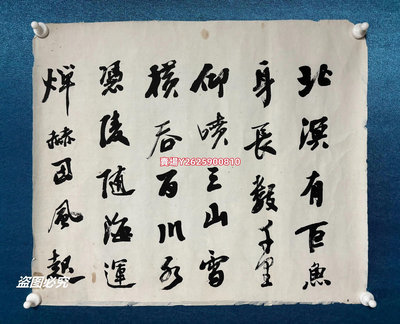 北溟有巨魚
身長數千里
仰噴三山雪
橫吞百川水
憑陵隨海運
燀赫因風起
賣場Y2625900810
盗图必究